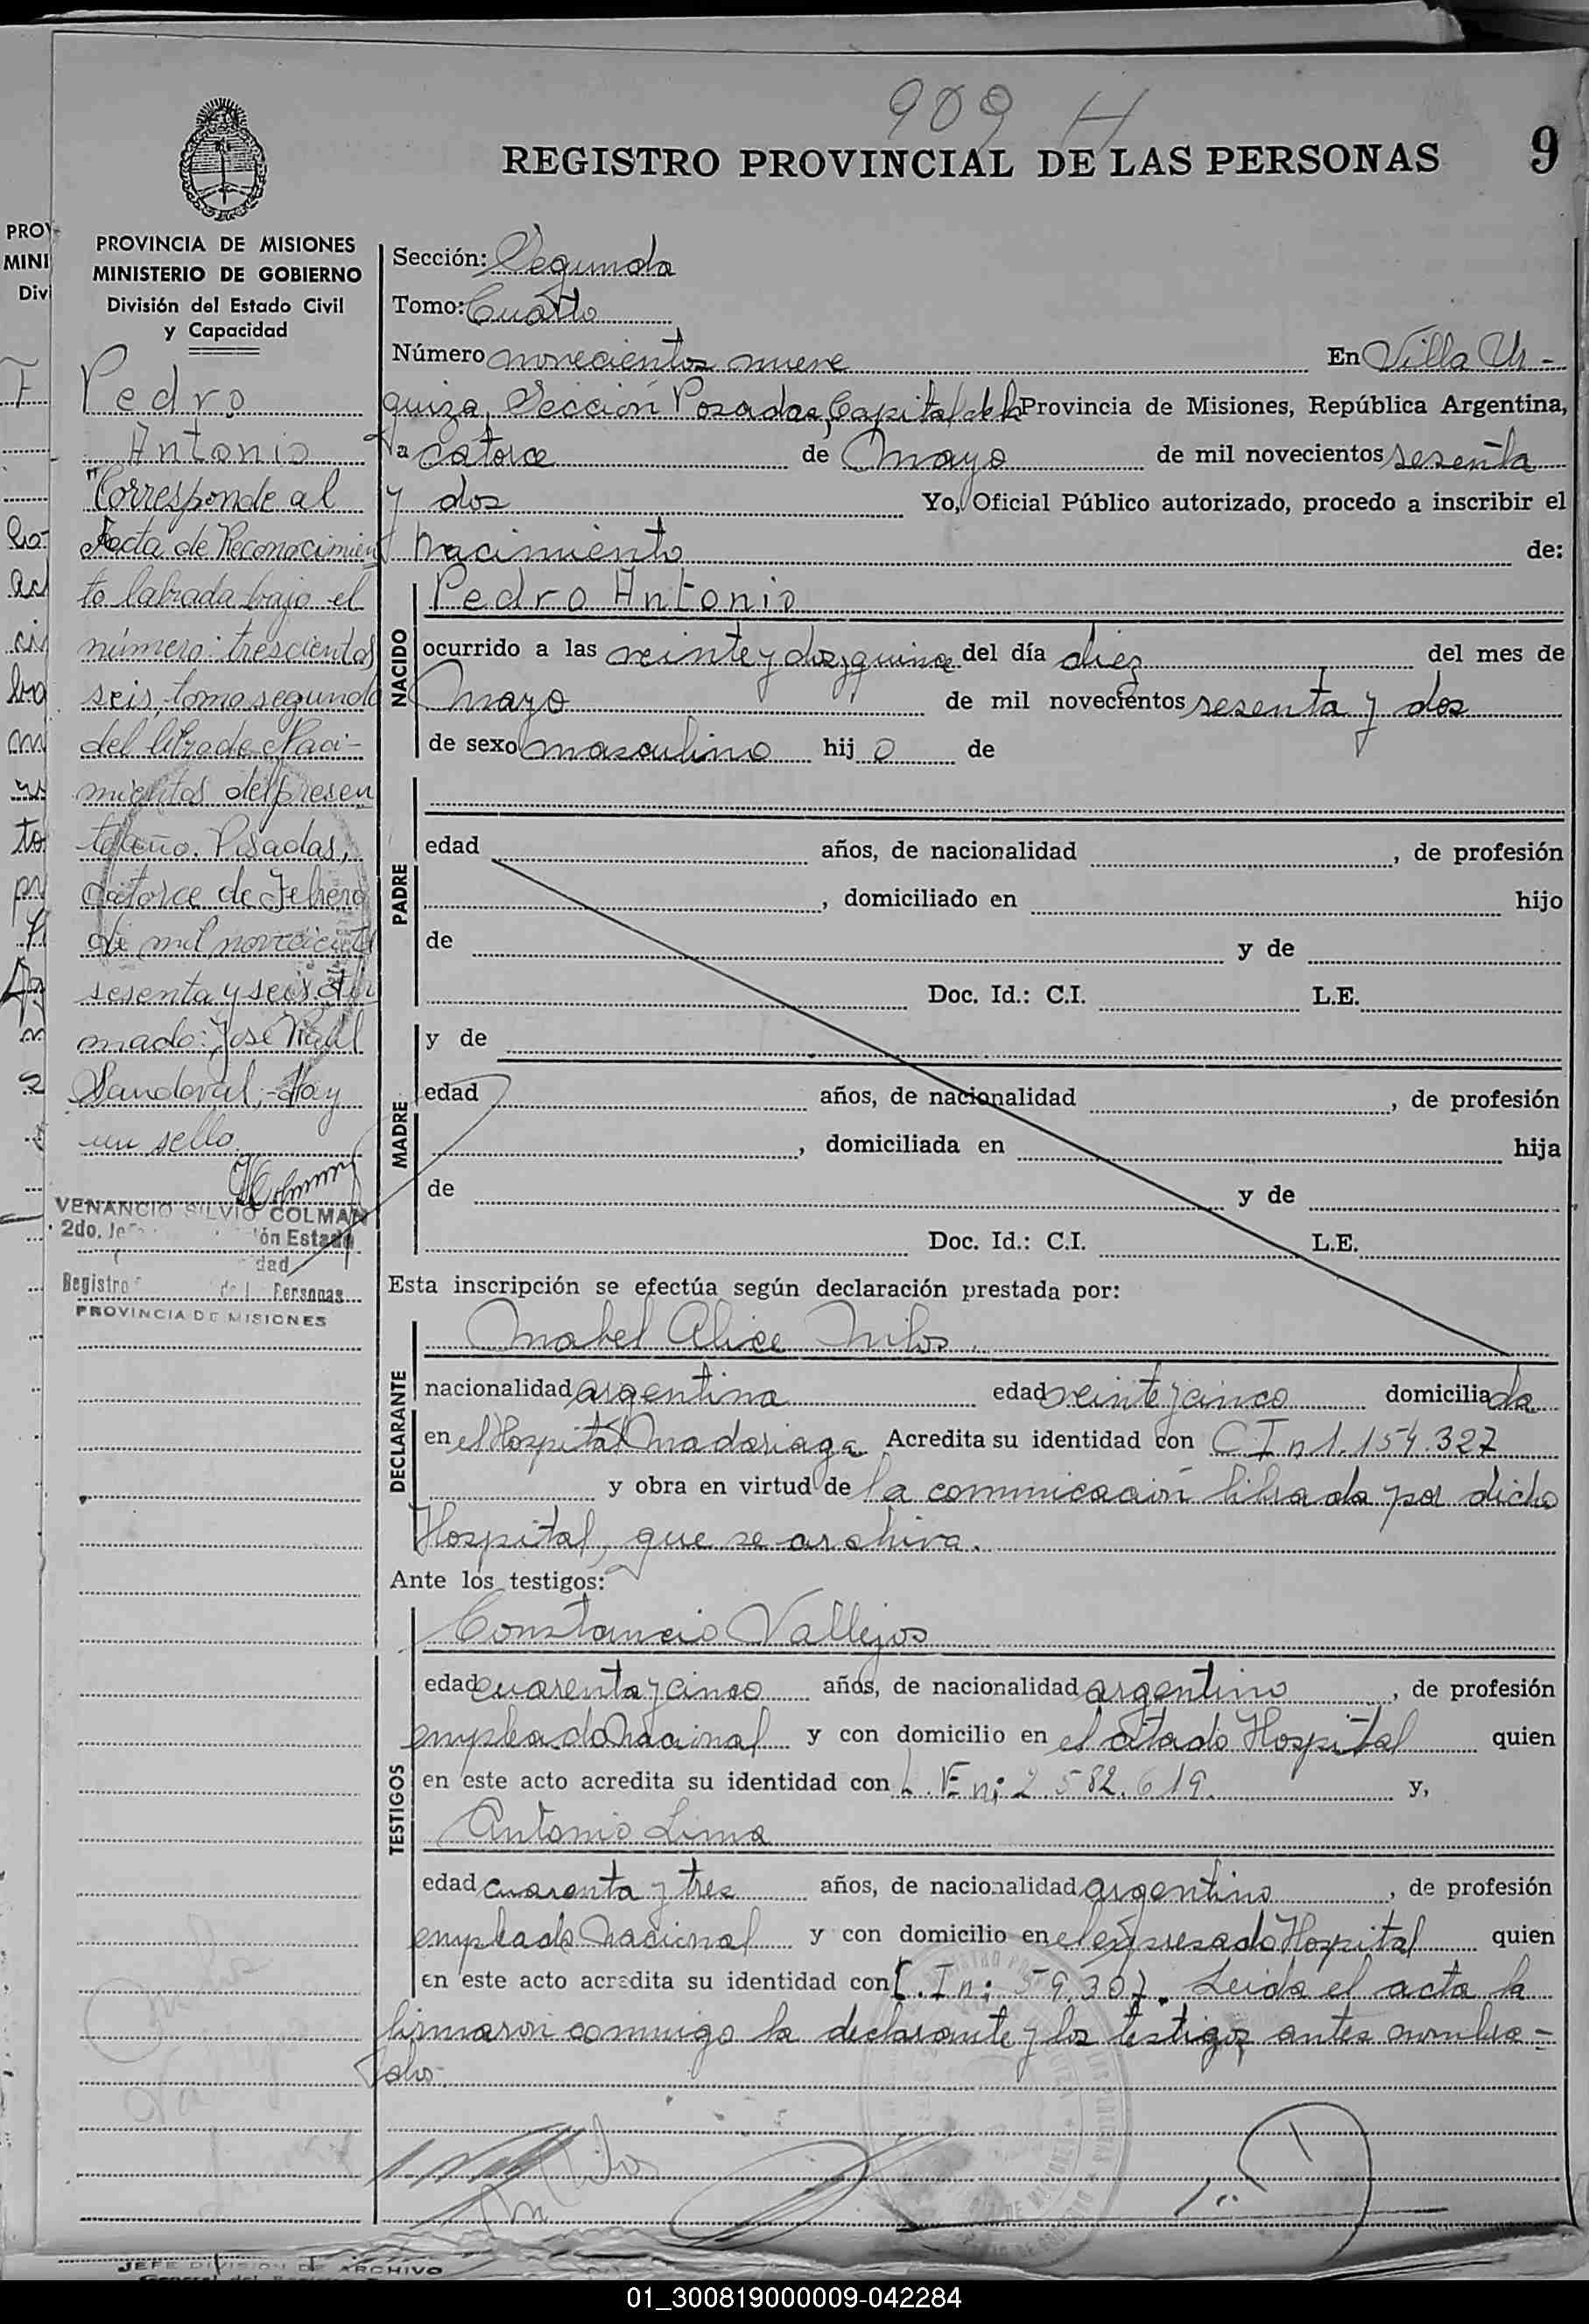 909 H
REGISTRO PROVINCIAL DE LAS PERSONAS
9
PROVINCIA DE MISIONES
MINISTERIO DE GOBIERNO
División del Estado Civil
y Capacidad
Pedro
Antonio
"Corresponde al
Acta de Reconocimien
to labrada bajo el
número: trescientos
seis, tomo segundo
del libro de Naci-
mientos del presen
te año. Posadas,
catorce de Febrero
de mil novecientos
sesenta y seis. Fir
mado: José Raúl
Sandoval,- Hay
un sello.
VENANCIO SILVIO COLMAN
2do. Je
ón Estado
dad
Registro de l Personas
PROVINCIA DE MISIONES
Sección: Segunda
Tomo: Cuarto
Número novecientos nueve En Villa Ur-
quiza, Sección Posadas, Capital de la Provincia de Misiones, República Argentina,
a catorce de Mayo de mil novecientos sesenta
y dos Yo, Oficial Público autorizado, procedo a inscribir el
nacimiento de:
NACIDO
Pedro Antonio
ocurrido a las veinte y dos y quince del día diez del mes de
Mayo de mil novecientos sesenta y dos
de sexo masculino hij o de
PADRE
edad años, de nacionalidad , de profesión
, domiciliado en hijo
de y de
Doc. Id.: C.I. L.E.
MADRE
y de
edad años, de nacionalidad , de profesión
, domiciliada en hija
de y de
Doc. Id.: C.I. L.E.
Esta inscripción se efectúa según declaración prestada por:
DECLARANTE
Mabel Alice
nacionalidad argentina edad veinte y cinco domicilia da
en el Hospital Madariaga Acredita su identidad con C I n 1.154.327
y obra en virtud de la comunicación librada por dicho
Hospital, que se archiva.
Ante los testigos:
TESTIGOS
Constancio Vallejos
edad cuarenta y cinco años, de nacionalidad argentino , de profesión
empleado Nacional y con domicilio en el citado Hospital quien
en este acto acredita su identidad con L.E n: 2.582.619. y,
Antonio Lima
edad cuarenta y tres años, de nacionalidad argentino , de profesión
empleado Nacional y con domicilio en el expresado Hospital quien
en este acto acredita su identidad con C.I n: 59.307. Leida el acta la
firmaron conmigo la declarante y los testigos antes nombra-
dos.
JEFE DIVISION DE ARCHIVO
01_300819000009-042284